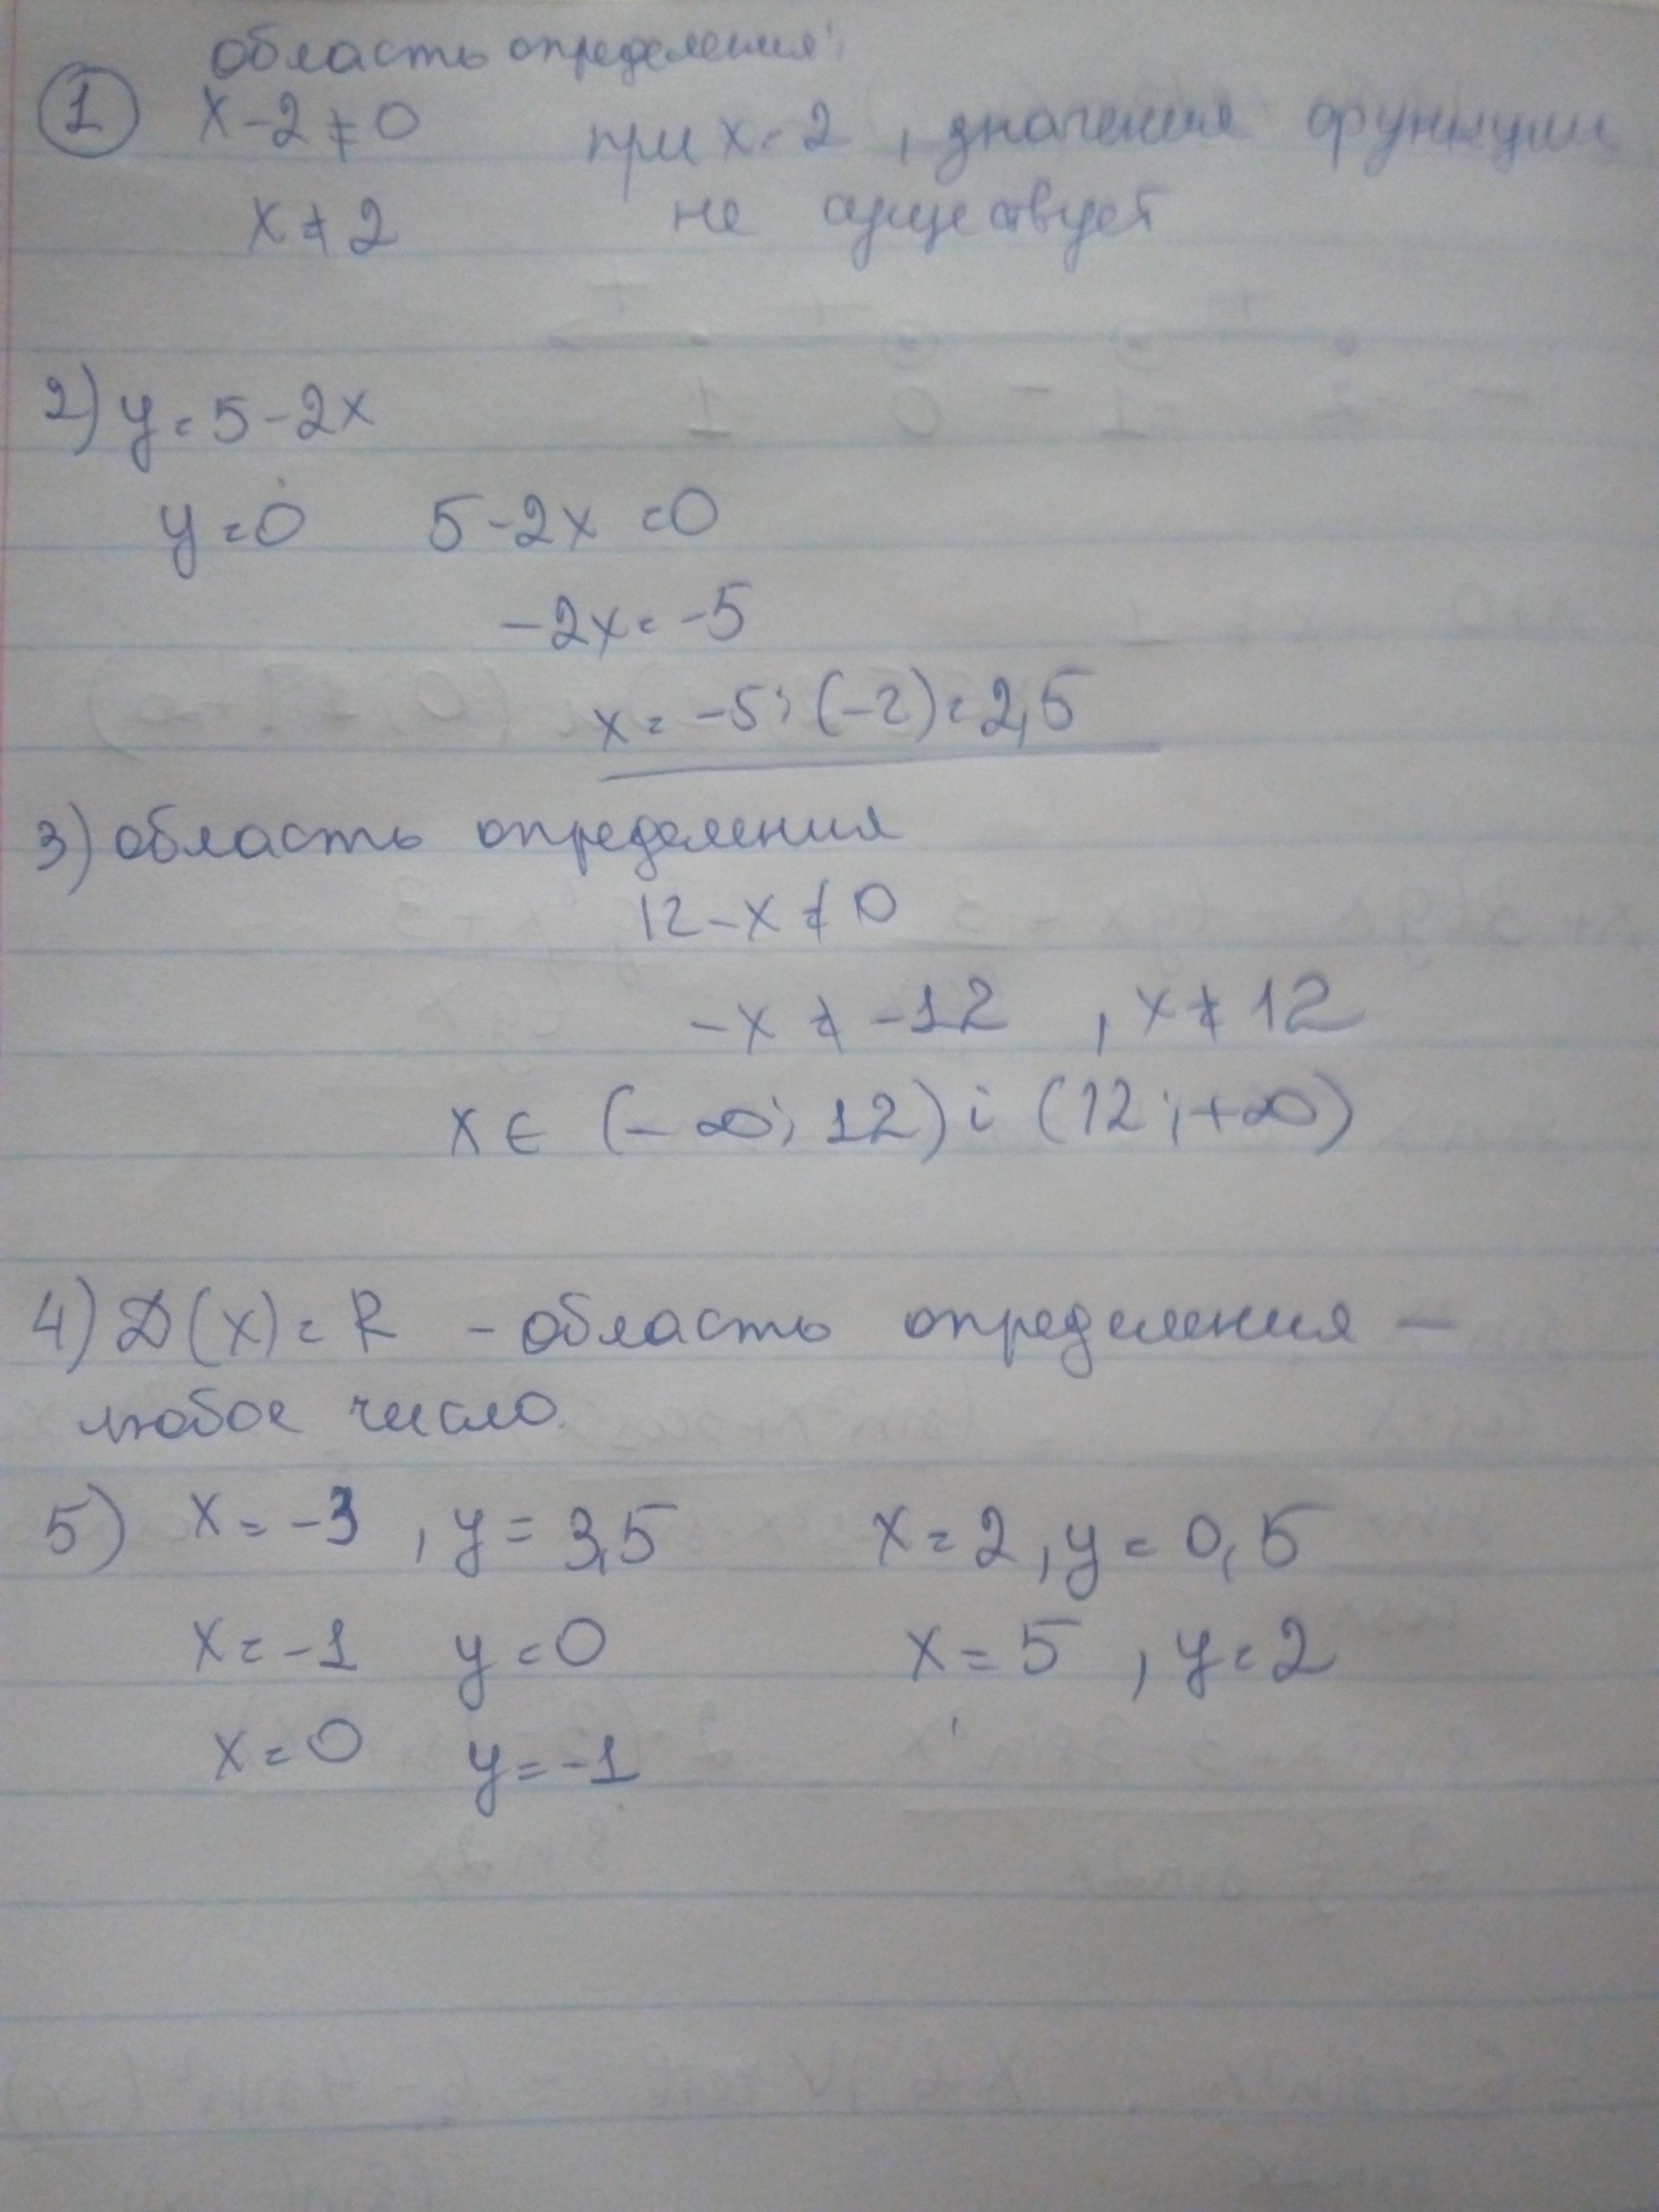 область определения:
① x-2≠0 при x=2, значения функции
x≠2 не существует
2) y=5-2x
y=0 5-2x=0
-2x=-5
x=-5:(-2)=2,5
3) область определения
12-x≠0
-x≠-12, x≠12
x∈(-∞;12) і (12;+∞)
4) D(x)=R - область определения -
любое число.
5) x=-3, y=3,5 x=2, y=0,5
x=-1 y=0 x=5, y=2
x=0 y=-1